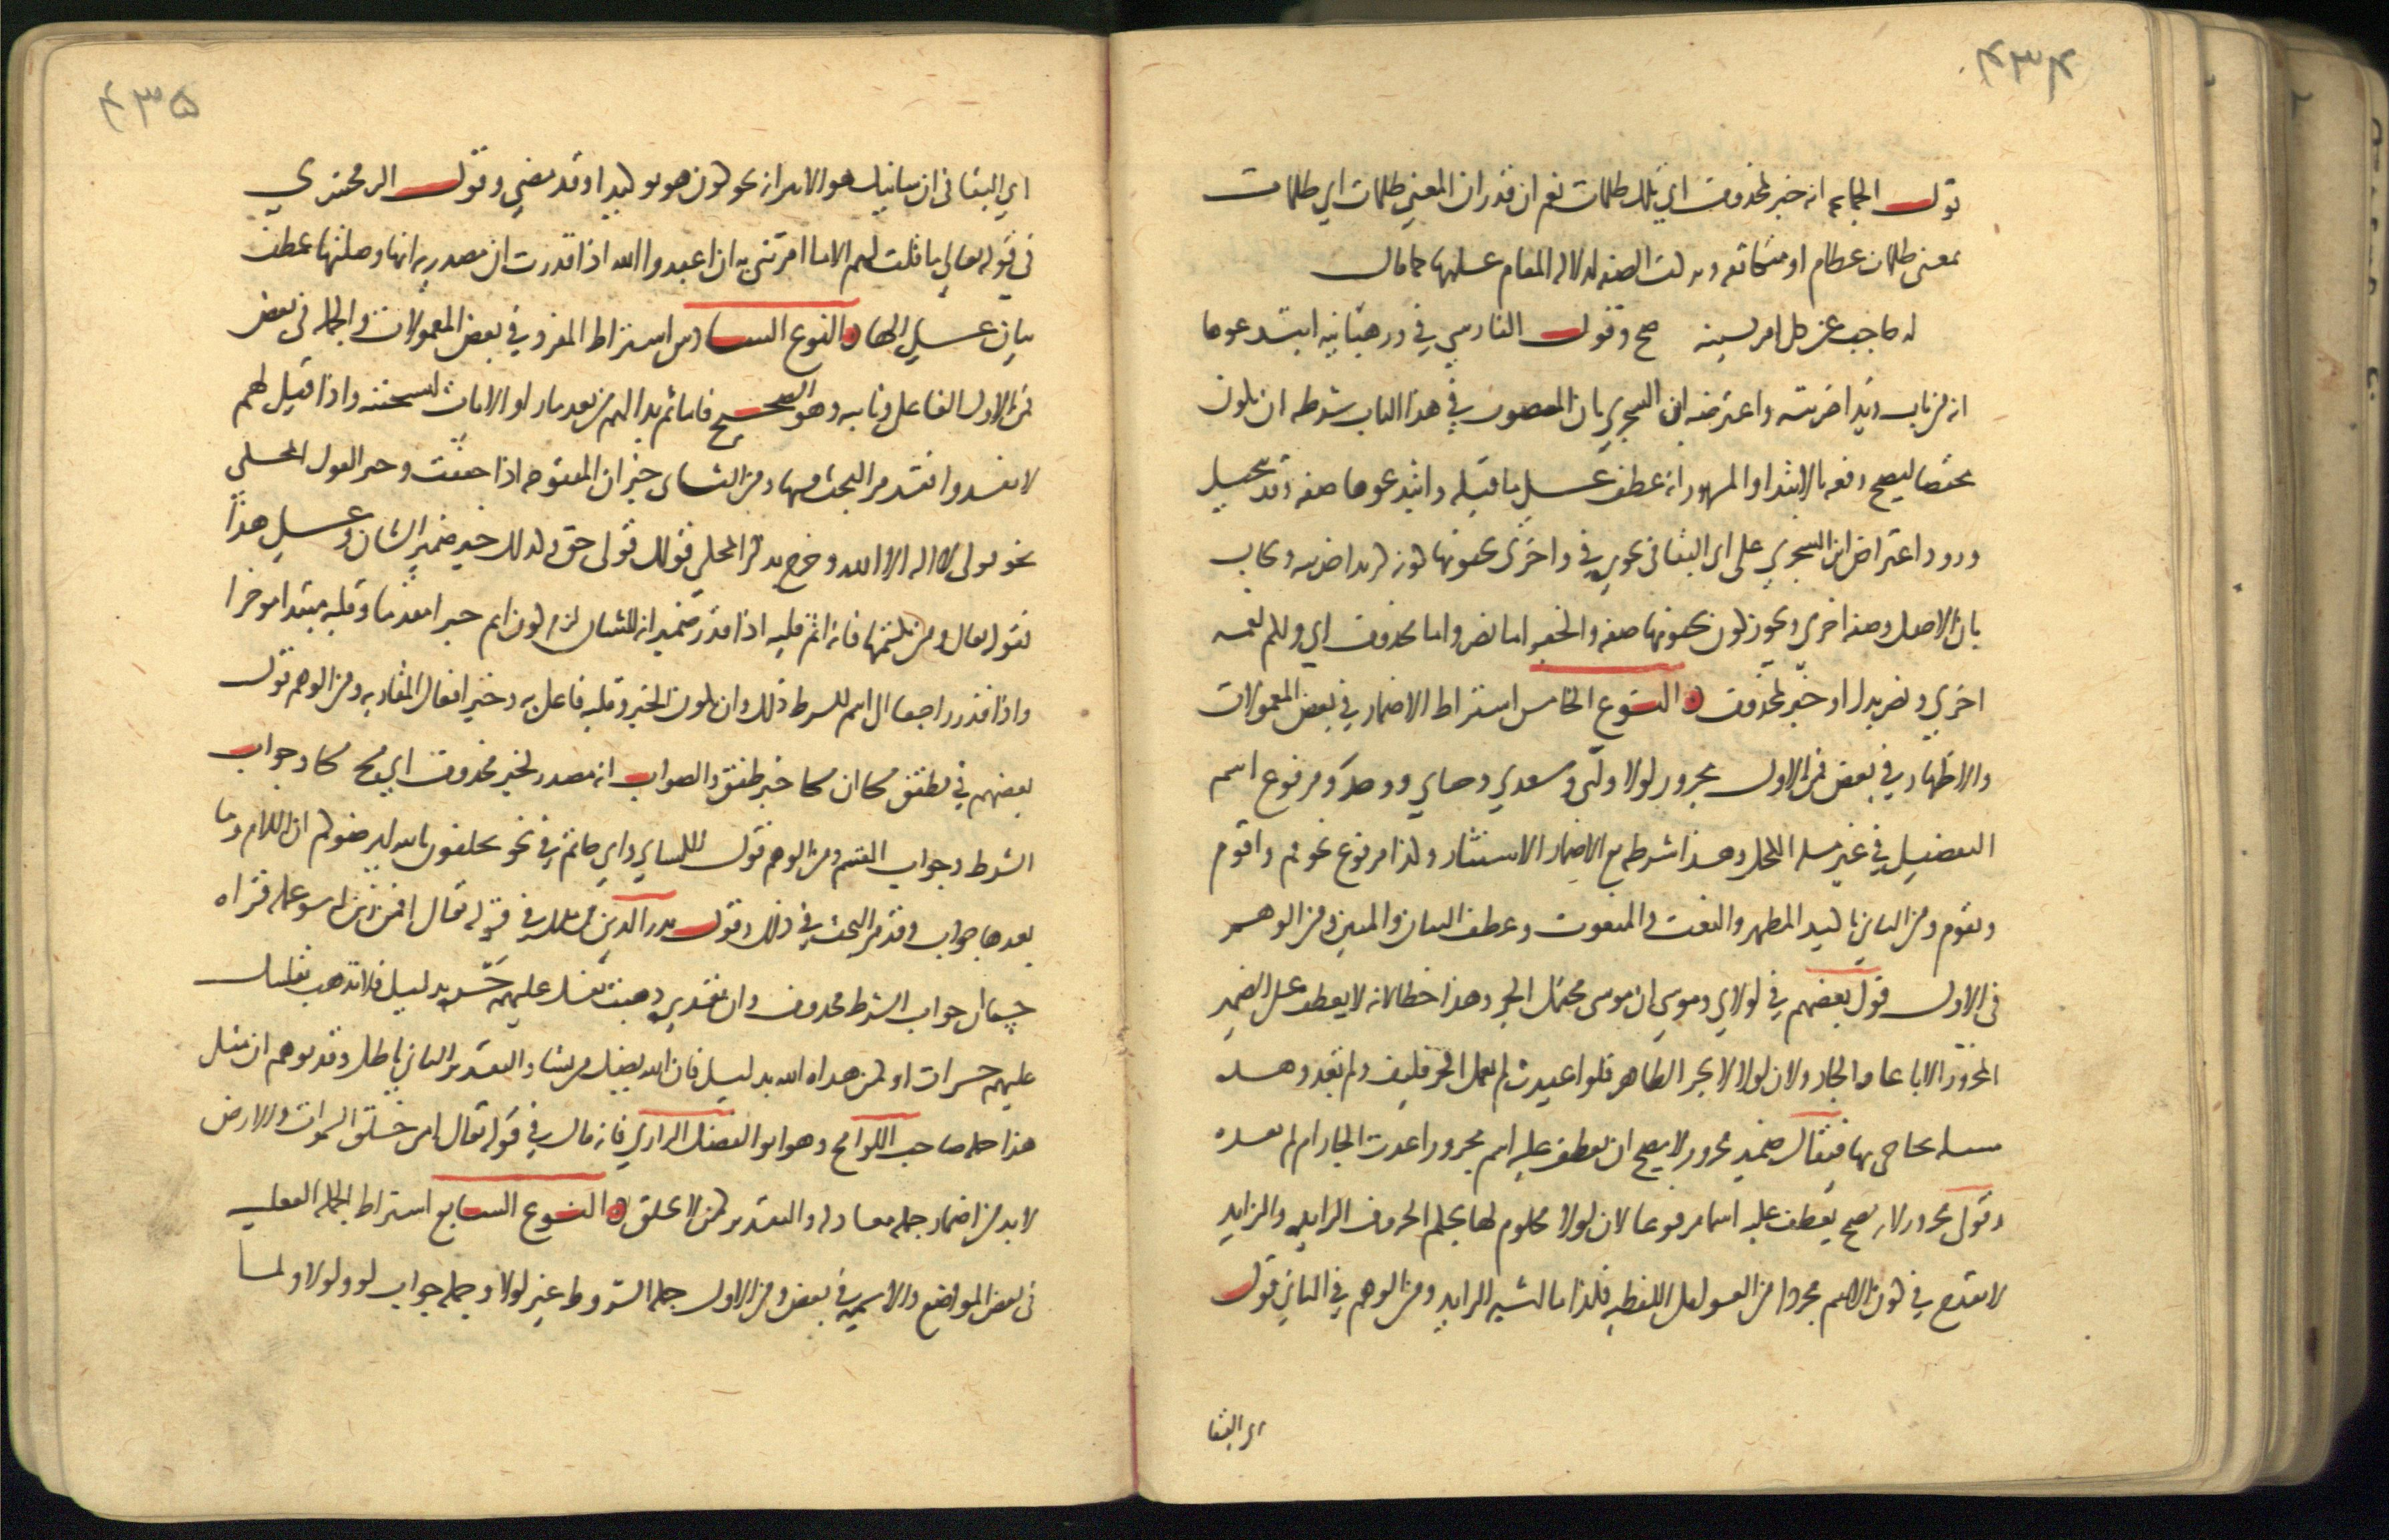 ۴۳۴
قول الجماعه انه خبر لمحذوف اي تلك ظلمات نعم ان قدر ان المعني ظلمات اي ظلمات
بمعني ظلمات عظام او متكاثفه وتركت الصفه لدلاله المقام عليها كما قال
له حاجب عن كل امر يشينه صح وقول الفارسي في ورهبانيه ابتدعوها
انه من باب زيدا ضربته واعترضه ابن الشجري بان المنصوب في هذا الباب شرطه ان يكون
مختصا ليصح رفعه بالابتدا والمشهور انه عطف علي ما قبله وابتدعوها صفه وقد تخيل
ورود اعتراض ابن الشجري علي ابي البقا في تجويزه في واخري تحبونها كونه كزيدا ضربته ويجاب
بان الاصل وصفه اخري ويجوز كون تحبونها صفه والخبر اما نصر واما محذوف اي ولكم نعمه
اخري ونصر بدل او خبر لمحذوف النوع الخامس اشتراط الاضمار في بعض المعمولات
والاظهار في بعض فمن الاول مجرور لولا ولبي وسعدي وحناني ووحد ومرفوع اسم
التفضيل في غير مسله الكحل وهذا شرطه مع الاضمار الاستتار وكذا مرفوع نحو قم واقوم
ونقوم ومن الثاني تاكيد المظهر والنعت والمنعوت وعطف البيان والمبين ومن الوهم
في الاول قول بعضهم في لولاي وموسي ان موسي محتمل الجر وهذا خطا لانه لا يعطف علي الضمير
المجرور الا باعاده الجار ولان لولا لا تجر الظاهر فلو اعيدت لم تعمل الجر فكيف ولم تعد وهذه
مسله يحاجي بها فيقال ضمير مجرور لا يصح ان يعطف عليه اسم مجرور اعدت الجار ام لم تعده
وقولي مجرور لانه يصح يعطف عليه اسما مرفوعا لان لولا محكوم لها بحكم الحروف الزايده والزايد
لا يقدح في كون الاسم مجردا من العوامل اللفظيه فكذا ما اشبه الزايد ومن الوهم في الثاني قول
ابي البقا
۴۳۵
اي البقا في ان شانيك هو الابتر انه يجوز كون هو توكيدا وقد مضي وقول الزمخشري
في قوله تعالي ما قلت لهم الا ما امرتني به ان اعبدوا الله اذا قدرت ان مصدريه انها وصلتها عطف
بيان علي الها النوع السادس اشتراط المفرد في بعض المعمولات والجمله في بعض
فمن الاول الفاعل ونايبه وهو الصحيح فاما ثم بدا لهم من بعد ما راوا الايات ليسجننه واذا قيل لهم
لا تفسدوا فقد مر البحث فيهما ومن الثاني خبر ان المفتوحه اذا خففت وخبر القول المحكي
نحو قولي لا اله الا الله وخرج بذكر المحكي قولك قولي حق وكذلك خبر ضمير الشان وعلي هذا
فقوله تعالي ومن يكتمها فانه اثم قلبه اذا قدر ضمير انه للشان لزم كون اثم خبرا مقدما وقلبه مبتدا موخرا
واذا قدر راجعا الي اسم الشرط جاز ذلك وان يكون الخبر وقلبه فاعل به وخبر افعال المقاربه ومن الوهم قول
بعضهم في فطفق مسحا ان مسحا خبر طفق والصواب انه مصدر لخبر محذوف اي يمسح مسحا وجواب
الشرط وجواب القسم ومن الوهم قول الكسايي وابي حاتم في نحو يحلفون بالله ليرضوكم ان اللام وما
بعدها جواب وقد مر البحث في ذلك وقول بدر الدين بن مالك في قوله تعالي افمن زين له سوء عمله فراه
حسنا ان جواب الشرط محذوف وان تقديره ذهبت نفسك عليهم حسره بدليل فلا تذهب نفسك
عليهم حسرات او كمن هداه الله بدليل فان الله يضل من يشا والتقدير الثاني باطل وقد توهم ان مثل
هذا جمله صاحب اللوامح وهو ابو الفضل الرازي فانه قال في قوله تعالي امن خلق السموات والارض
لا بد من اضمار جمله معادله والتقدير كمن لا يخلق النوع السابع اشتراط الجمله الفعليه
في بعض المواضع والاسميه في بعض ومن الاول جمله الشروط غير لولا وجمله جواب لو ولولا ولما